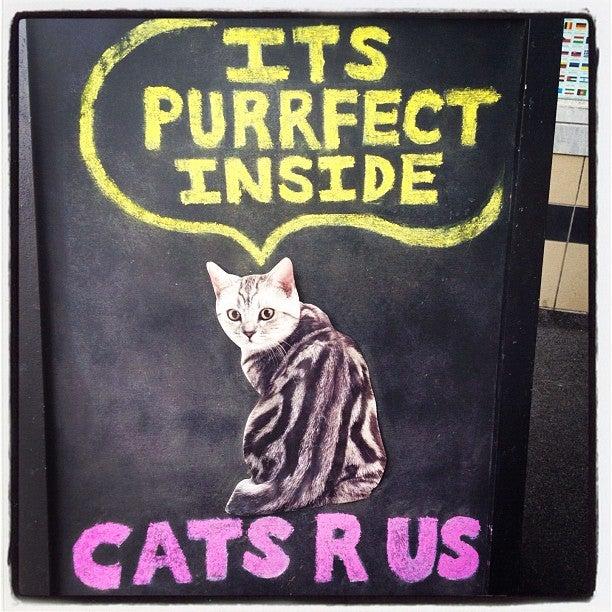 ITS
PURRFECT
INSIDE
CATS R US